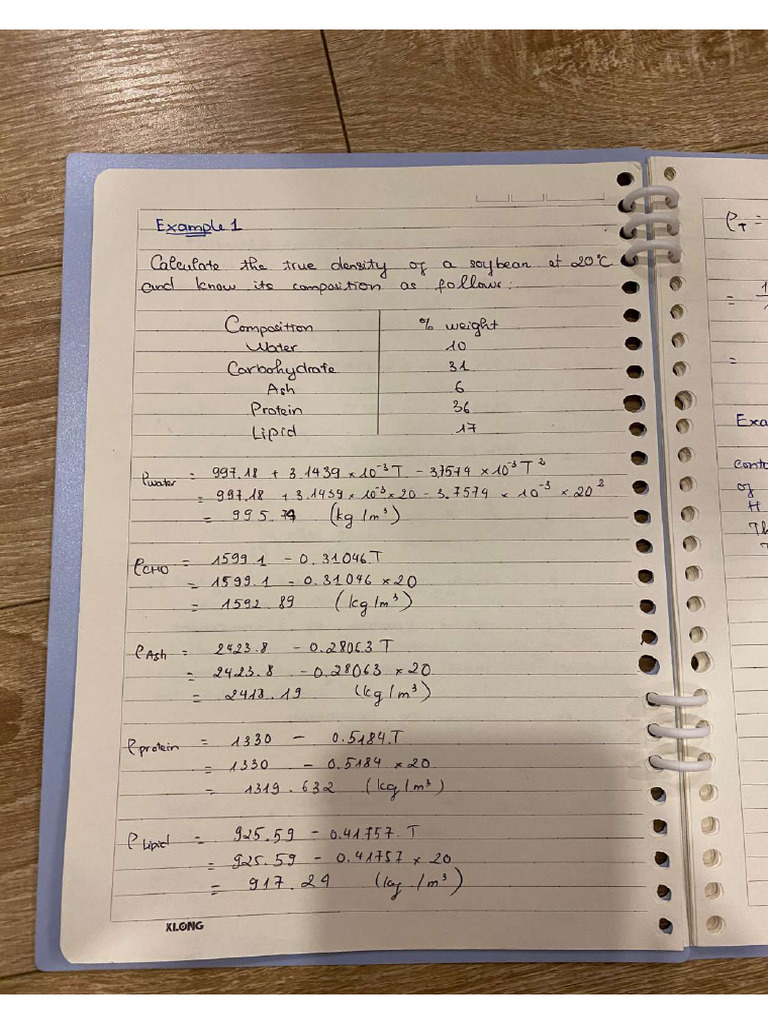 Example 1
Calculate the true density of a soybean at 20°C
and know its composition as follows:
Composition % weight
Water 10
Carbohydrate 31
Ash 6
Protein 36
Lipid 17
ρwater = 997.18 + 3.1439 × 10⁻³ T − 3.7574 × 10⁻³ T²
= 997.18 + 3.1439 × 10⁻³ × 20 − 3.7574 × 10⁻³ × 20²
= 995.74 (kg/m³)
ρCHO = 1599.1 − 0.31046.T
= 1599.1 − 0.31046 × 20
= 1592.89 (kg/m³)
ρAsh = 2423.8 − 0.28063 T
= 2423.8 − 0.28063 × 20
= 2418.19 (kg/m³)
ρprotein = 1330 − 0.5184.T
= 1330 − 0.5184 × 20
= 1319.632 (kg/m³)
ρLipid = 925.59 − 0.41757.T
= 925.59 − 0.41757 × 20
= 917.24 (kg/m³)
KLONG
ρT =
=
=
Exa
conta
of
H
Th